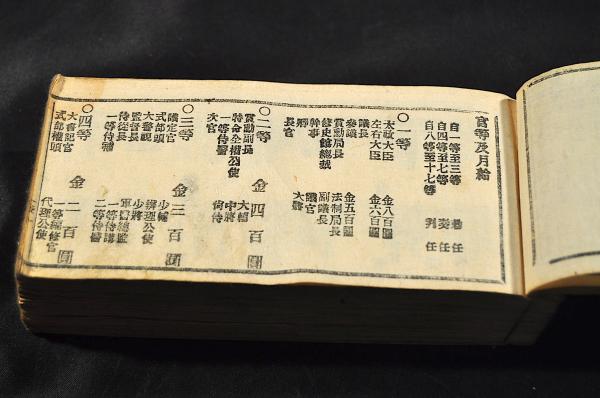 官等及月給
自一等至三等 勅任
自四等至七等 奏任
自八等至十七等 判任
〇一等
太政大臣 金八百圓
左右大臣 金六百圓
議長
參議 金五百圓
賞勳局長 法制局長
修史館總裁 副議長
幹事 議官
卿 大將
長官
〇二等 金四百圓
賞勳副長 大輔
特命全權公使 中將
一等侍醫 尚侍
次官
〇三等 金三百圓
議定官 少輔
式部頭 辦理公使
大警視 少將
監督長 軍醫總監
侍從長 一等侍講
一等侍補 二等侍醫
〇四等 金二百圓
大書記官 一等編修官
式部權頭 代理公使